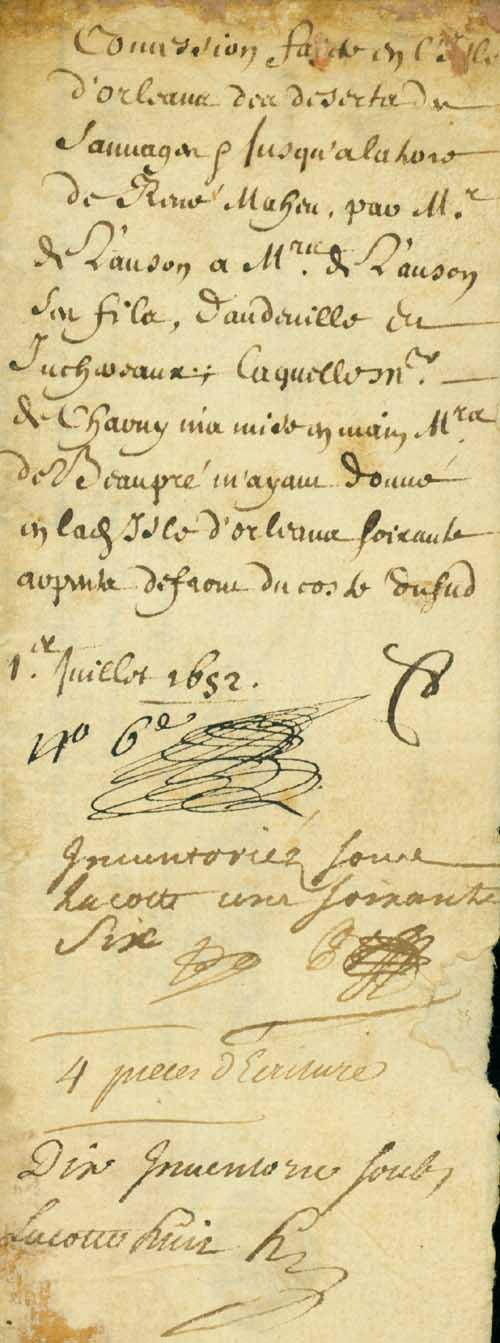 Concession faite en l'Isle
d'orleans des deserts des
sauvages Jusqu'a la terre
de René Maheu, par Mr
de Lauson a Mrs de Lauson
ses fils, Dandeville
Laquelle Mr
de Charny m'a mise en main Mrs
de Beaupré m'ayant donné
en lad Isle d'orleans soixante
arpents de front du costé du sud
1er Juillet 1652.
No 6e
Inventoriez soubs
la cotte cent soixante
Six
4 pieces d'Ecriture
Dix Inventorié soubs
la cotte huit